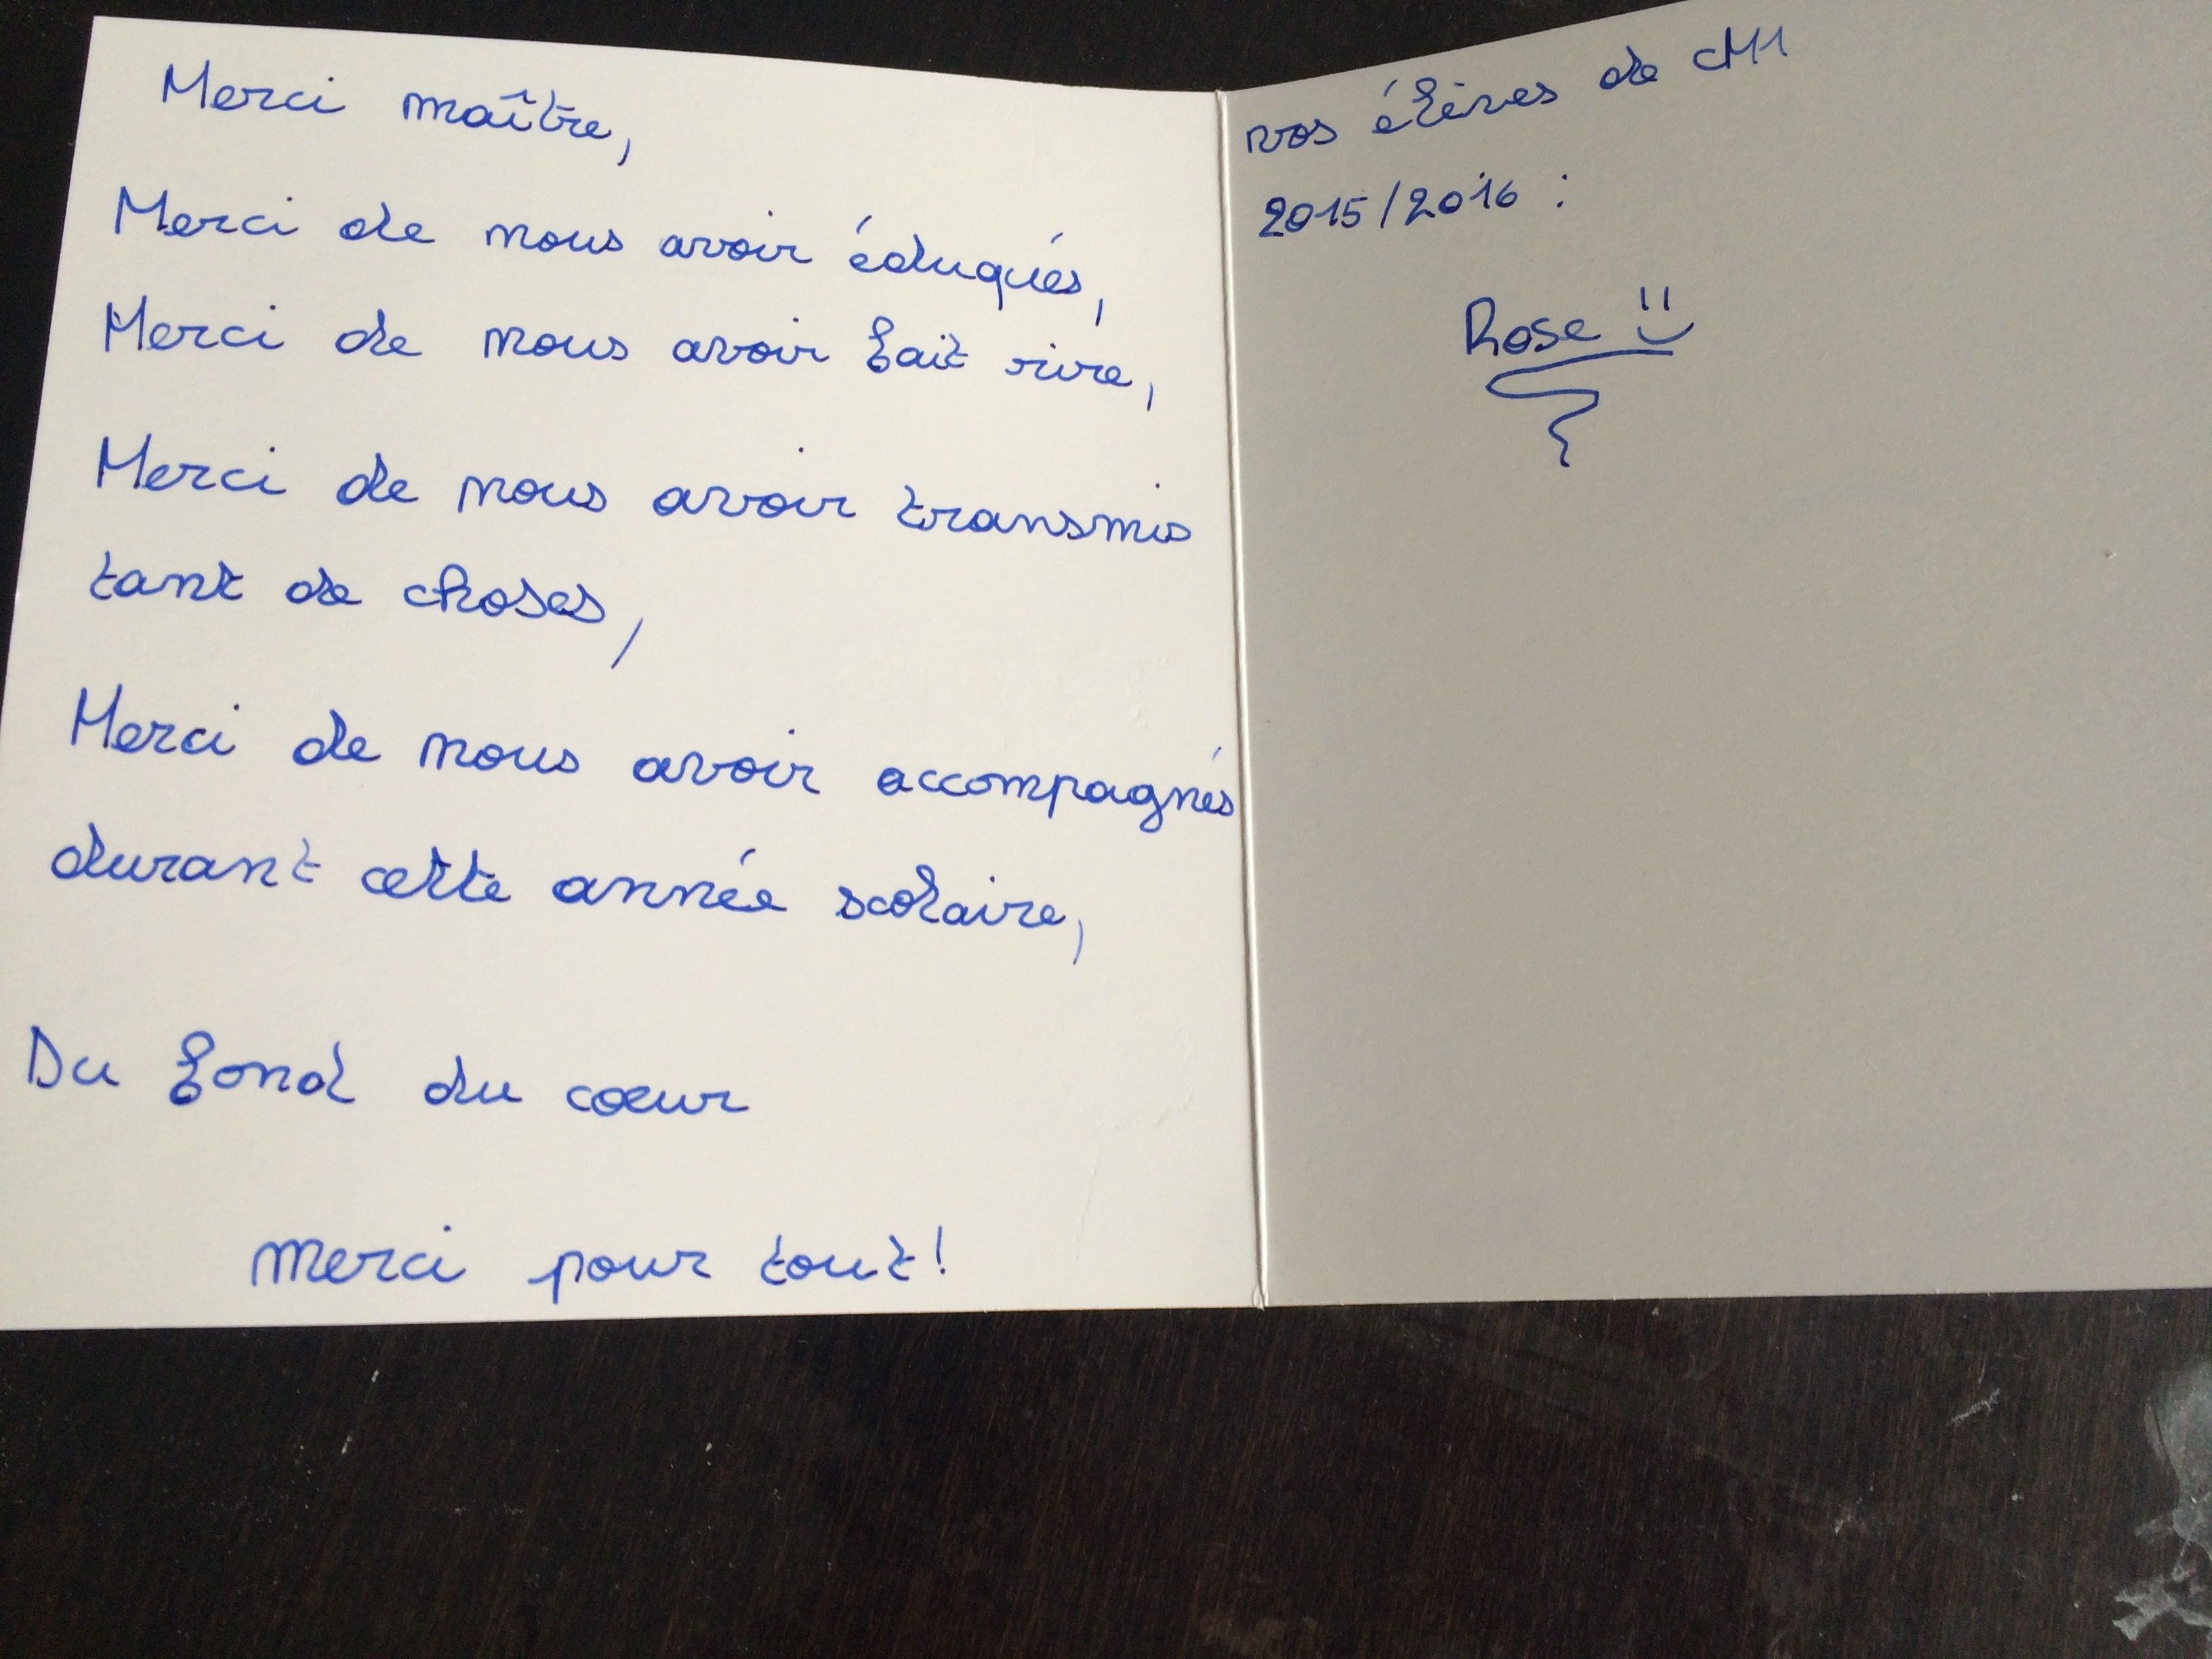 Merci maître,
Merci de nous avoir éduqués,
Merci de nous avoir fait rire,
Merci de nous avoir transmis
tant de choses,
Merci de nous avoir accompagnés
durant cette année scolaire,
Du fond du cœur
merci pour tout!
vos élèves de CM1
2015/2016 :
Rose